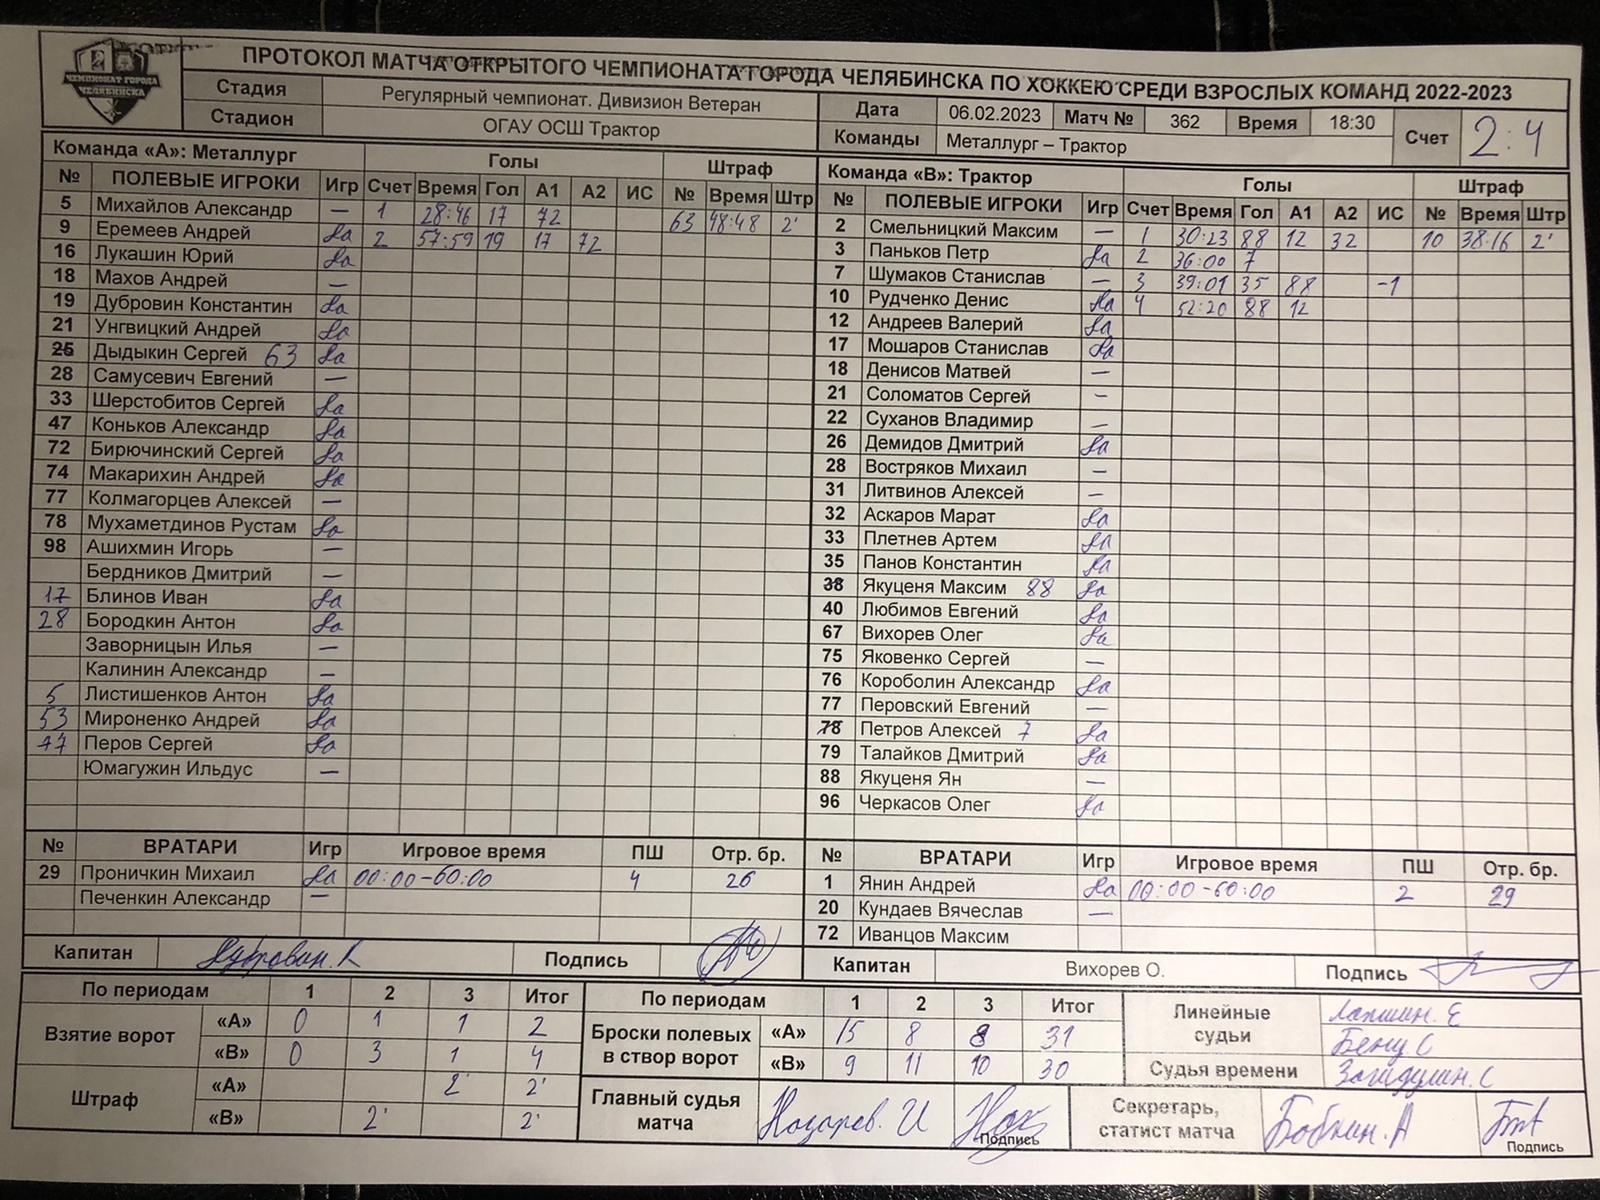 ПРОТОКОЛ МАТЧА ОТКРЫТОГО ЧЕМПИОНАТА ГОРОДА ЧЕЛЯБИНСКА ПО ХОККЕЮ СРЕДИ ВЗРОСЛЫХ КОМАНД 2022-2023
ЧЕМПИОНАТ ГОРОДА
ЧЕЛЯБИНСКА
Стадия Регулярный чемпионат. Дивизион Ветеран
Стадион ОГАУ ОСШ Трактор
Дата 06.02.2023 Матч № 362 Время 18:30
Команды Металлург – Трактор
Счет 2:4
Команда «А»: Металлург Голы Штраф
№ ПОЛЕВЫЕ ИГРОКИ Игр Счет Время Гол А1 А2 ИС № Время Штр
5 Михайлов Александр — 1 28:46 17 72 63 48:48 2'
9 Еремеев Андрей Да 2 57:59 19 17 72
16 Лукашин Юрий Да
18 Махов Андрей —
19 Дубровин Константин Да
21 Унгвицкий Андрей Да
25 Дыдыкин Сергей 63 Да
28 Самусевич Евгений —
33 Шерстобитов Сергей Да
47 Коньков Александр Да
72 Бирючинский Сергей Да
74 Макарихин Андрей Да
77 Колмагорцев Алексей —
78 Мухаметдинов Рустам Да
98 Ашихмин Игорь —
Бердников Дмитрий —
17 Блинов Иван Да
28 Бородкин Антон Да
Заворницын Илья —
Калинин Александр —
5 Листишенков Антон Да
53 Мироненко Андрей Да
77 Перов Сергей Да
Юмагужин Ильдус —
№ ВРАТАРИ Игр Игровое время ПШ Отр. бр.
29 Проничкин Михаил Да 00:00-60:00 4 26
Печенкин Александр —
Капитан Дубровин. К Подпись
Команда «В»: Трактор Голы Штраф
№ ПОЛЕВЫЕ ИГРОКИ Игр Счет Время Гол А1 А2 ИС № Время Штр
2 Смельницкий Максим — 1 30:23 88 12 32 10 38:16 2'
3 Паньков Петр Да 2 36:00 7
7 Шумаков Станислав — 3 39:01 35 88 -1
10 Рудченко Денис Да 4 52:20 88 12
12 Андреев Валерий Да
17 Мошаров Станислав Да
18 Денисов Матвей —
21 Соломатов Сергей —
22 Суханов Владимир —
26 Демидов Дмитрий Да
28 Востряков Михаил —
31 Литвинов Алексей —
32 Аскаров Марат Да
33 Плетнев Артем Да
35 Панов Константин Да
38 Якуценя Максим 88 Да
40 Любимов Евгений Да
67 Вихорев Олег Да
75 Яковенко Сергей —
76 Короболин Александр Да
77 Перовский Евгений —
78 Петров Алексей 7 Да
79 Талайков Дмитрий Да
88 Якуценя Ян —
96 Черкасов Олег Да
№ ВРАТАРИ Игр Игровое время ПШ Отр. бр.
1 Янин Андрей Да 00:00-60:00 2 29
20 Кундаев Вячеслав —
72 Иванцов Максим
Капитан Вихорев О. Подпись
По периодам 1 2 3 Итог
Взятие ворот «А» 0 1 1 2
«В» 0 3 1 4
Штраф «А» 2' 2'
«В» 2' 2'
По периодам 1 2 3 Итог
Броски полевых в створ ворот «А» 15 8 8 31
«В» 9 11 10 30
Линейные судьи Лапшин. Е
Бенц С
Судья времени Загидулин. С
Главный судья матча Назаров. И Подпись
Секретарь, статист матча Бобкин. А Подпись